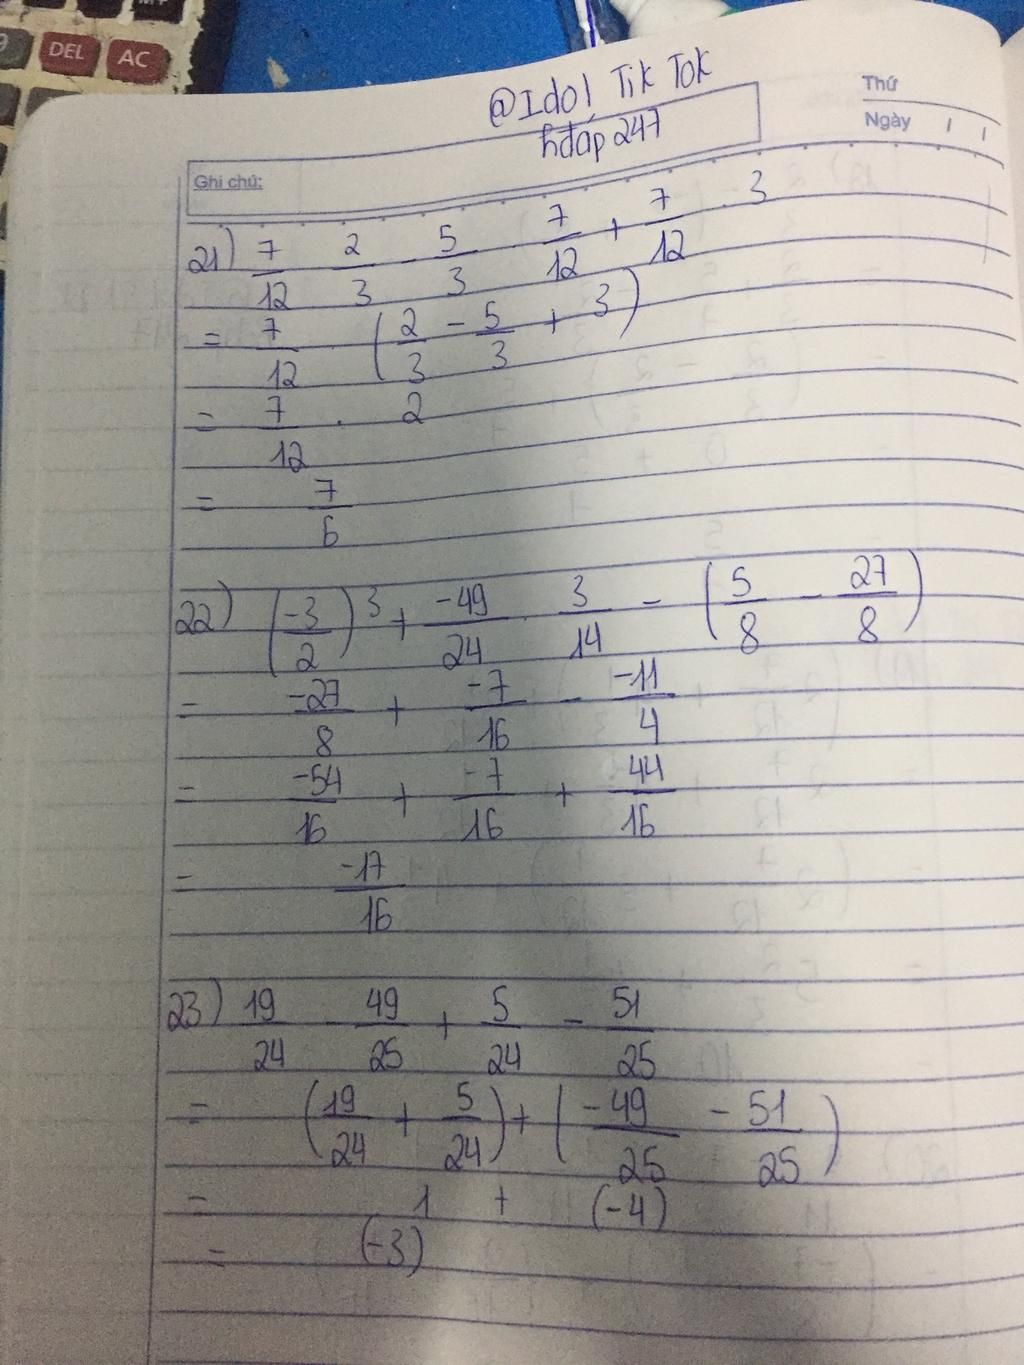 DEL AC
@Idol Tik Tok
hđáp 247
Thứ
Ngày / /
Ghi chú:
21) 7/12 . 2/3 - 5/3 . 7/12 + 7/12 . 3
= 7/12 . (2/3 - 5/3 + 3)
= 7/12 . 2
= 7/6
22) (-3/2)^3 + -49/24 . 3/14 - (5/8 - 27/8)
= -27/8 + -7/16 - -11/4
= -54/16 + -7/16 + 44/16
= -17/16
23) 19/24 - 49/25 + 5/24 - 51/25
= (19/24 + 5/24) + (-49/25 - 51/25)
= 1 + (-4)
= (-3)